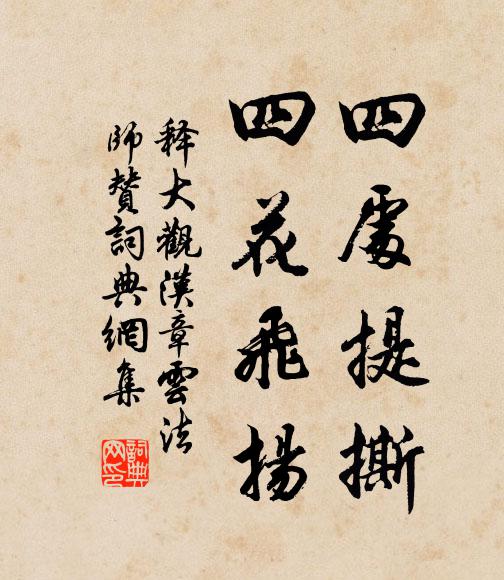 四處提撕
四花飛揚
释大觀漢章雲法
師贊詞典網集
詞典
网印